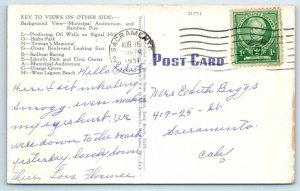 KEY TO VIEWS ON OTHER SIDE:—
Background View—Municipal Auditorium and
Rainbow Pier
L—Producing Oil Wells on Signal Hill
O—Bixby Park
N—Veteran's Memorial
G—Ocean Boulevard Looking East
B—Sailboat Racing
E—Lincoln Park and Civic Center
A—Municipal Auditorium
C—Orange Grove
H—West Lagoon Beach
21771
SACRAMENTO
AUG 15
1951
POST CARD
Hello Edith
Here I sit inhaling
Smogg, even makes
my eyes hurt. We
were down to the beach
yesterday. lovely down
there, Love Florence.
Mrs Edith Biggs
419-25 - St
Sacramento.
Calif